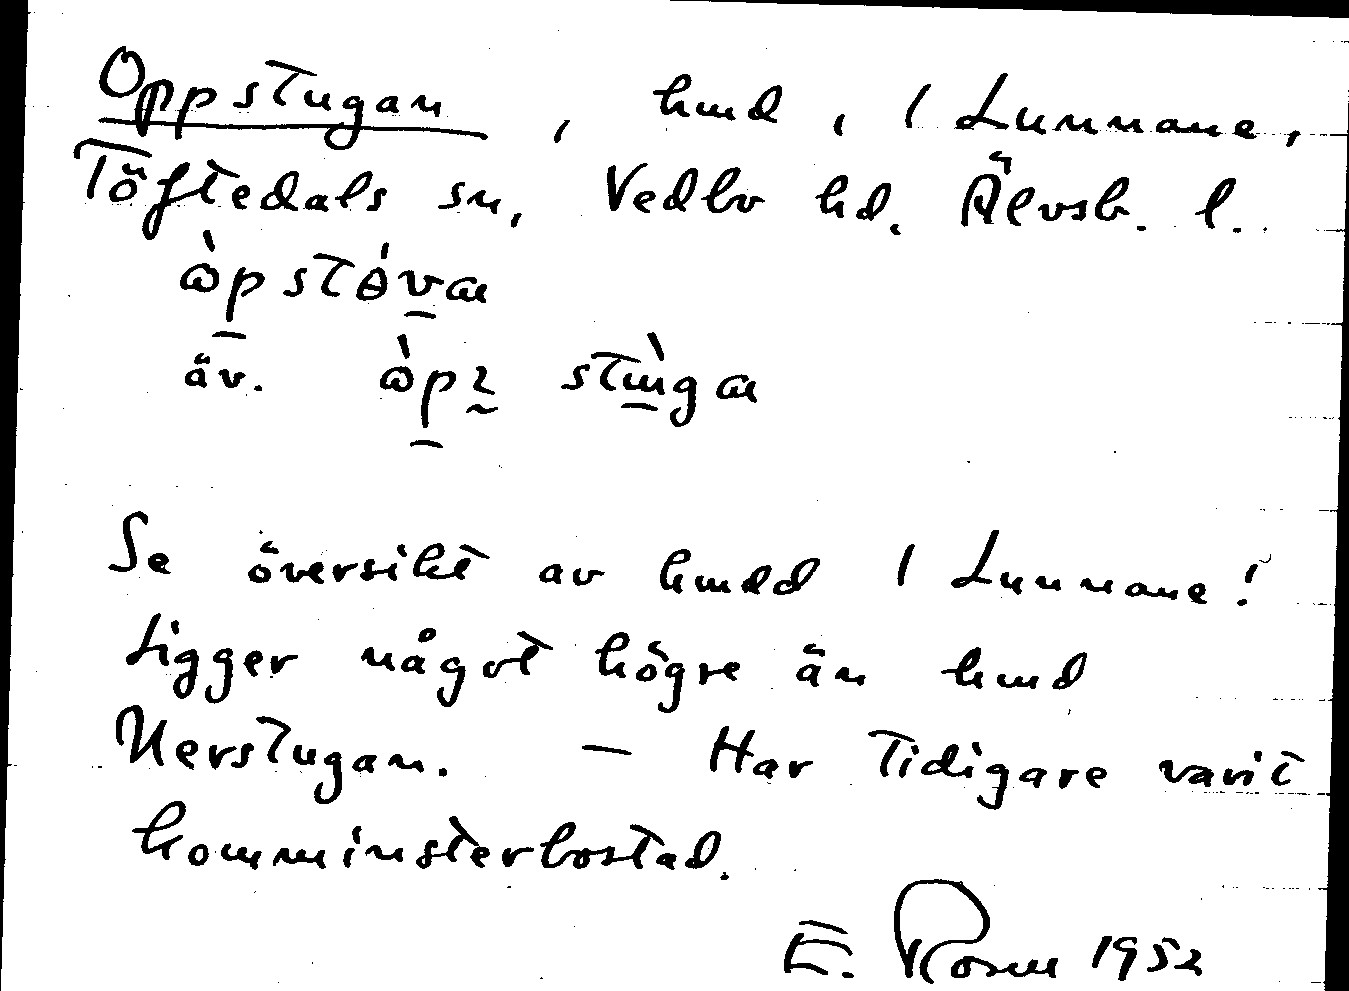 Oppstugan, hmd, i Lunnane,
Töftedals sn, Vedbo hd. Älvsb. l.
äv.
Se översikt av hmdd i Lunnane!
Ligger något högre än hmd
Nerstugan. — Har tidigare varit
komministerbostad.
E. Rosen 1952